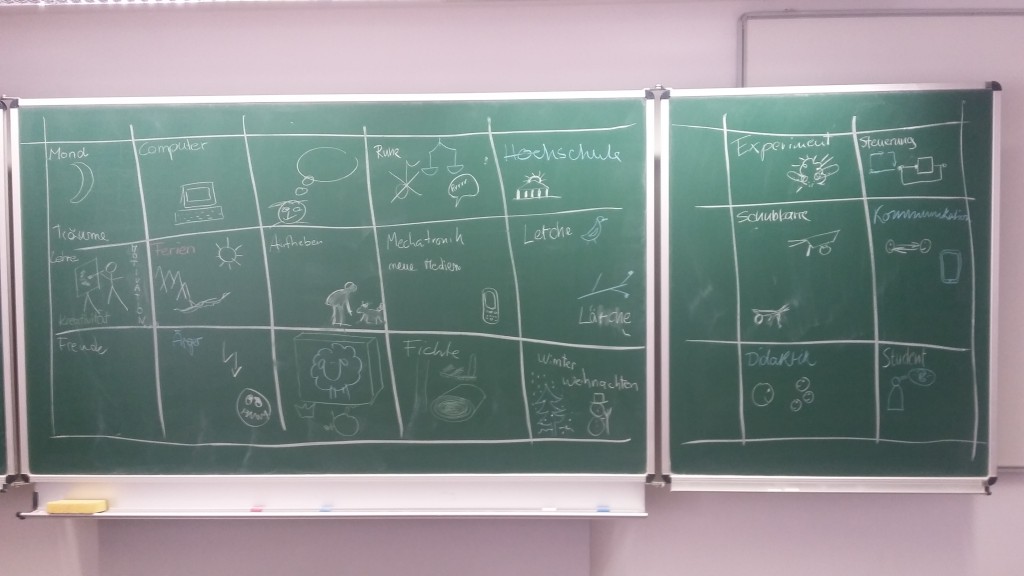 Mond
Computer
Ruhe
Hochschule
Experiment
Steuerung
Träume
Lehre
Ferien
Aufheben
Mechatronik
neue Medien
Lerche
Lärche
Schubkarre
Kommunikation
Kreativität
Freude
Ärger
Fichte
Winter
Weihnachten
Didaktik
Student